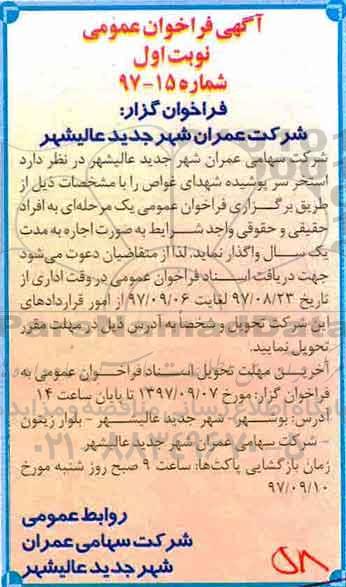 آگهی فراخوان عمومی
نوبت اول
شماره ۱۵-۹۷
فراخوان گزار:
شرکت عمران شهر جدید عالیشهر
شرکت سهامی عمران شهر جدید عالیشهر در نظر دارد
استخر سر پوشیده شهدای غواص را با مشخصات ذیل از
طریق برگزاری فراخوان عمومی یک مرحله‌ای به افراد
حقیقی و حقوقی واجد شرایط به صورت اجاره به مدت
یک سال واگذار نماید. لذا از متقاضیان دعوت می‌شود
جهت دریافت اسناد فراخوان عمومی در وقت اداری از
تاریخ ۹۷/۰۸/۲۳ لغایت ۹۷/۰۹/۰۶ از امور قراردادهای
این شرکت تحویل و شخصاً به آدرس ذیل در مهلت مقرر
تحویل نمایید.
آخرین مهلت تحویل اسناد فراخوان عمومی به
فراخوان گزار: مورخ ۱۳۹۷/۰۹/۰۷ تا پایان ساعت ۱۴
آدرس: بوشهر- شهر جدید عالیشهر - بلوار زیتون
- شرکت سهامی عمران شهر جدید عالیشهر
زمان بازگشایی پاکت‌ها: ساعت ۹ صبح روز شنبه مورخ
۹۷/۰۹/۱۰
روابط عمومی
شرکت سهامی عمران
شهر جدید عالیشهر
۵۸